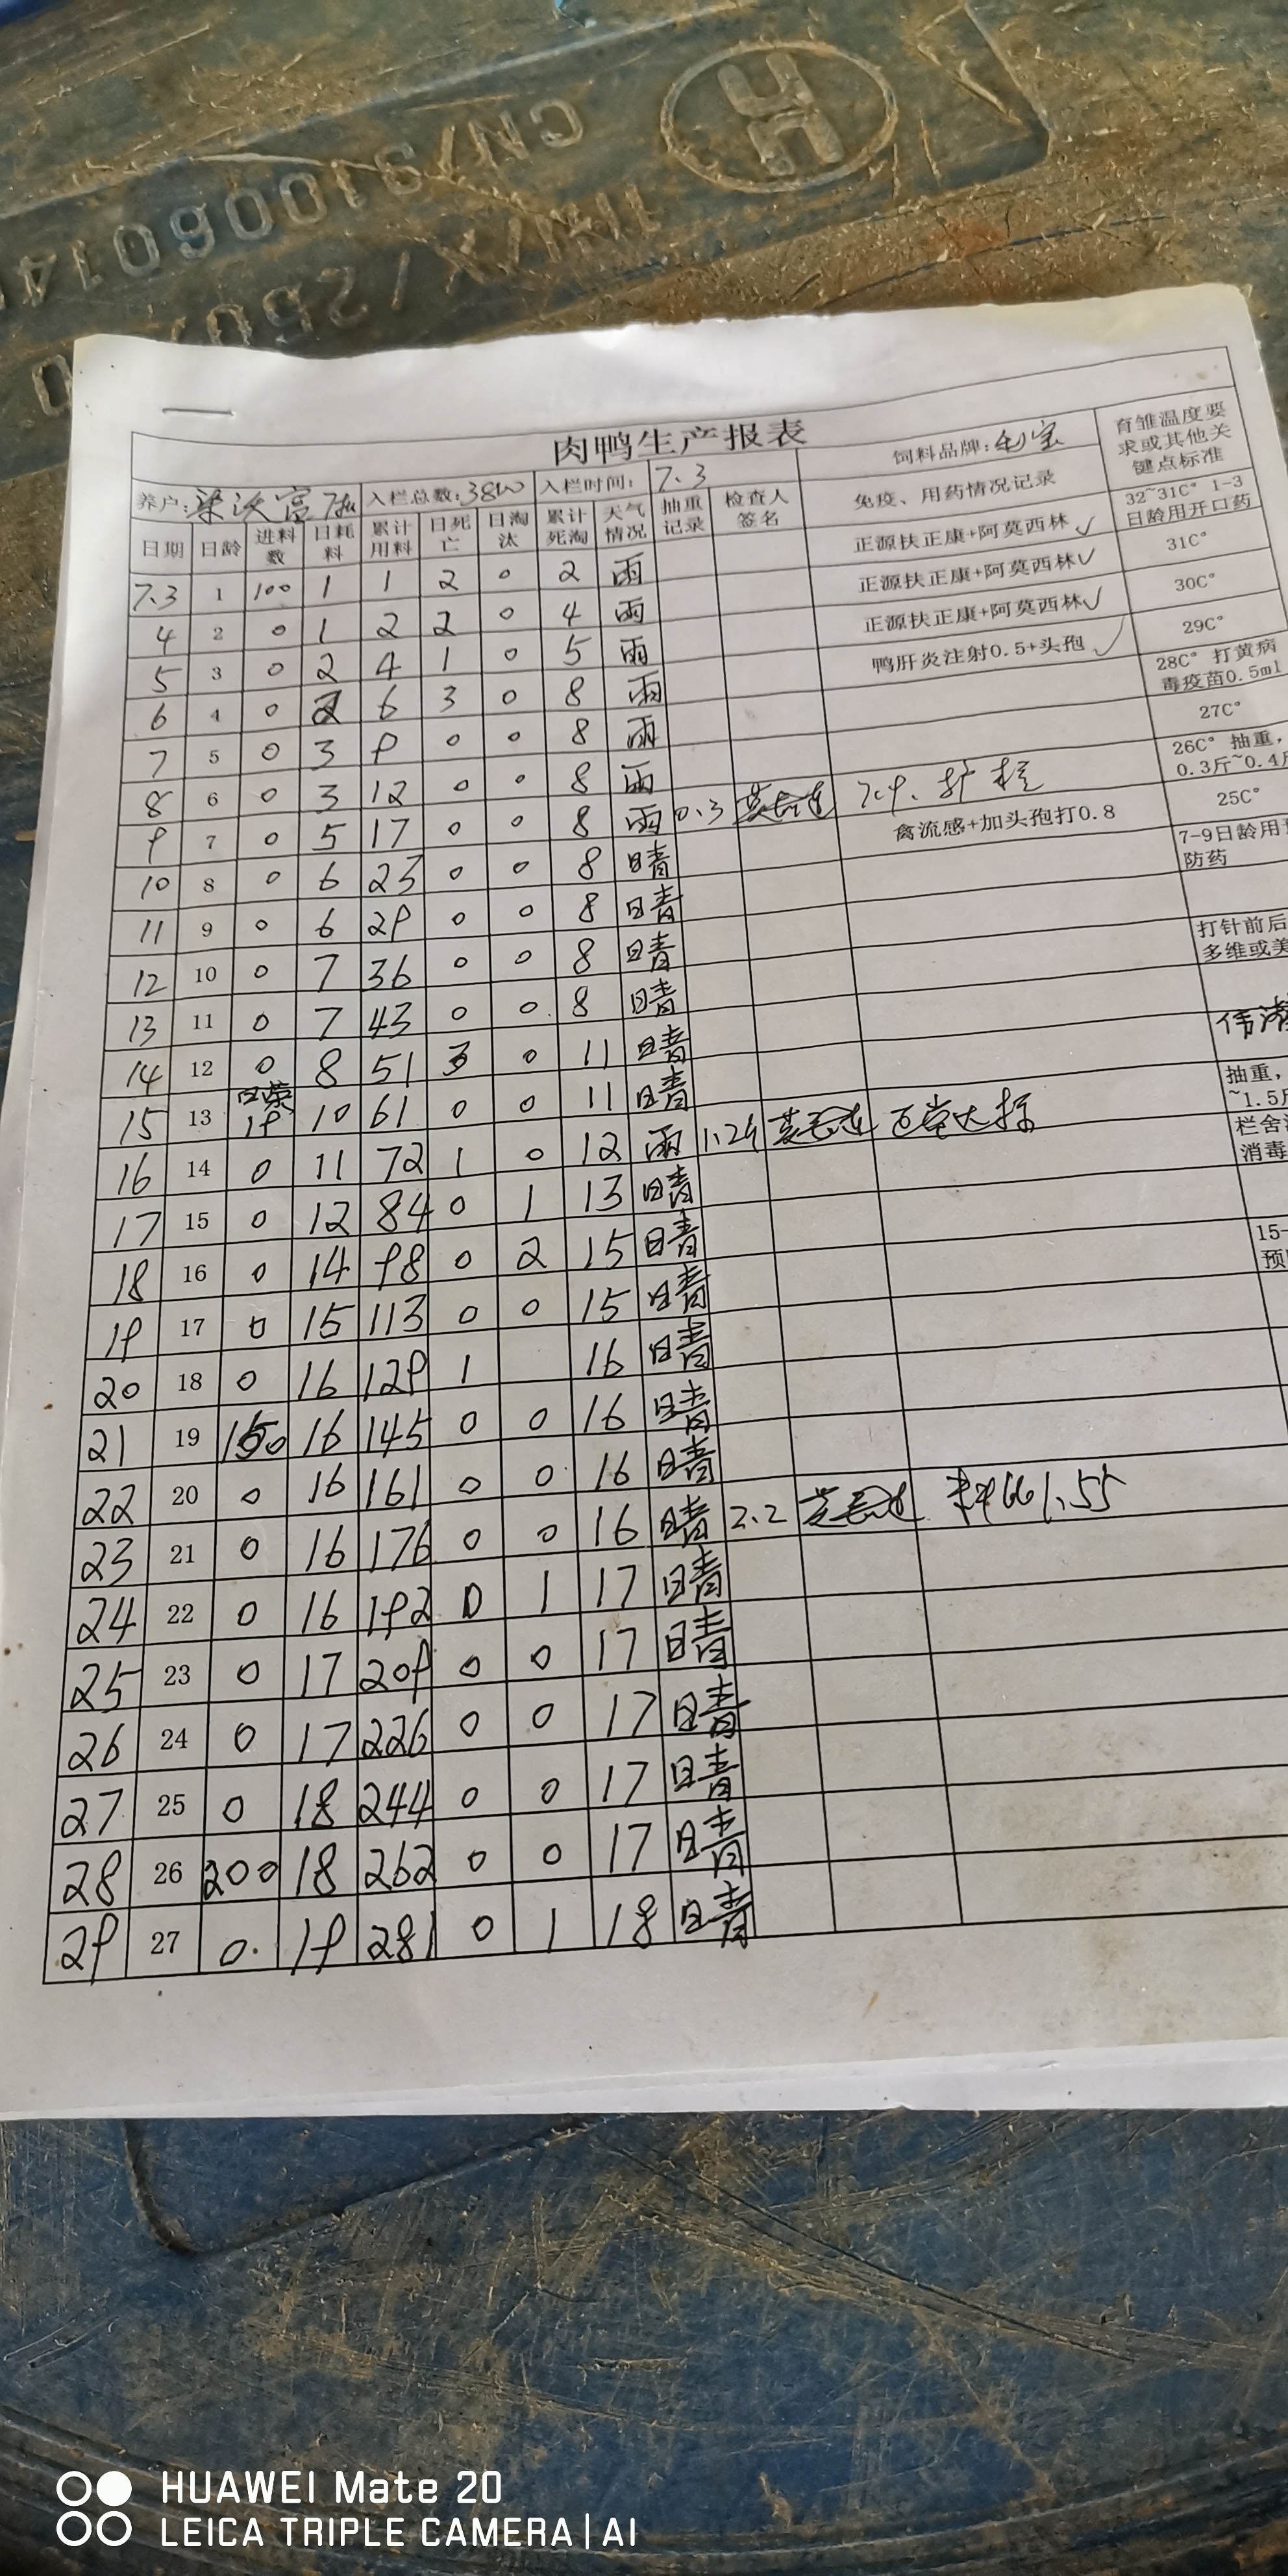 CN/91006014
肉鸭生产报表
养户: 梁沃富 入栏总数: 3800 入栏时间: 7.3 饲料品牌: 育雏温度要求或其他关键点标准
日期 日龄 进料数 日耗料 累计用料 日死亡 日淘汰 累计死淘 天气情况 抽重记录 检查人签名 免疫、用药情况记录
7.3 1 100 1 1 2 0 2 雨 正源扶正康+阿莫西林✓ 32~31C° 1-3日龄用开口药
4 2 0 1 2 2 0 4 雨 正源扶正康+阿莫西林✓ 31C°
5 3 0 2 4 1 0 5 雨 正源扶正康+阿莫西林✓ 30C°
6 4 0 2 6 3 0 8 雨 鸭肝炎注射0.5+头孢✓ 29C°
7 5 0 3 9 0 0 8 雨 28C° 打黄病毒疫苗0.5ml
8 6 0 3 12 0 0 8 雨 27C°
9 7 0 5 17 0 0 8 雨 0.3 7.9. 扩栏 26C° 抽重, 0.3斤~0.4斤
10 8 0 6 23 0 0 8 晴 禽流感+加头孢打0.8 25C°
11 9 0 6 29 0 0 8 晴 7-9日龄用 防药
12 10 0 7 36 0 0 8 晴
13 11 0 7 43 0 0 8 晴 打针前后 多维或美
14 12 0 8 51 3 0 11 晴
15 13 19 10 61 0 0 11 晴
16 14 0 11 72 1 0 12 雨 抽重, ~1.5斤
17 15 0 12 84 0 1 13 晴 栏舍 消毒
18 16 0 14 98 0 2 15 晴
19 17 0 15 113 0 0 15 晴 15- 预
20 18 0 16 129 1 16 晴
21 19 150 16 145 0 0 16 晴
22 20 0 16 161 0 0 16 晴
23 21 0 16 176 0 0 16 晴 2.2 料比1.55
24 22 0 16 192 0 1 17 晴
25 23 0 17 209 0 0 17 晴
26 24 0 17 226 0 0 17 晴
27 25 0 18 244 0 0 17 晴
28 26 200 18 262 0 0 17 晴
29 27 0. 19 281 0 1 18 晴
HUAWEI Mate 20
LEICA TRIPLE CAMERA | AI